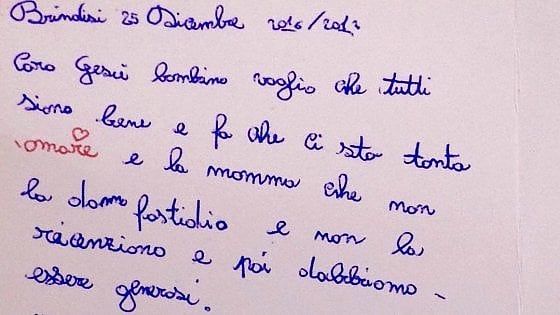 Brindisi 25 Dicembre 2016/2017
Caro Gesù bambino voglio che tutti
siano bene e fa che ci sta tanta
amore e la mamma che non
la danno fastidio e non la
e poi dobbiamo
essere generosi.